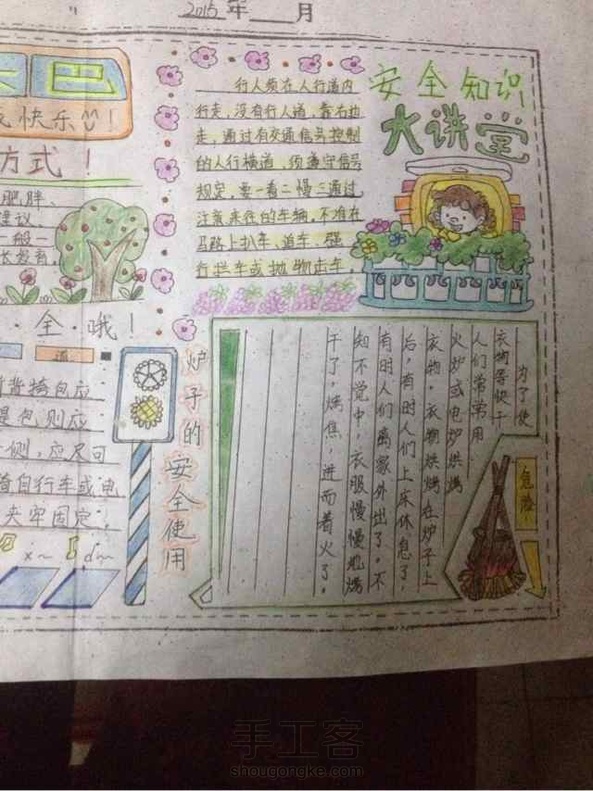 2015年___月
大巴
快乐!
方式!
肥胖、
建议
一般一
长发育,
全·哦!
背挎包应
包则应
侧,应尽可
骑自行车或电
夹牢固定,
行人须在人行道内
行走,没有行人道,靠右边
走,通过有交通信号控制
的人行横道,须遵守信号
规定,要一看二慢三通过,
注意来往的车辆,不准在
马路上扒车、追车、强
行拦车或抛物击车,
安全知识
大讲堂
炉子的安全使用
为了使
衣物等快干,
人们常常用
火炉或电炉烘烤
衣物,衣物烘烤在炉子上
后,有时人们上床休息了,
有时人们离家外出了,不
知不觉中,衣服慢慢地烤
干了,烤焦,进而着火了。
危险
手工客
shougongke.com